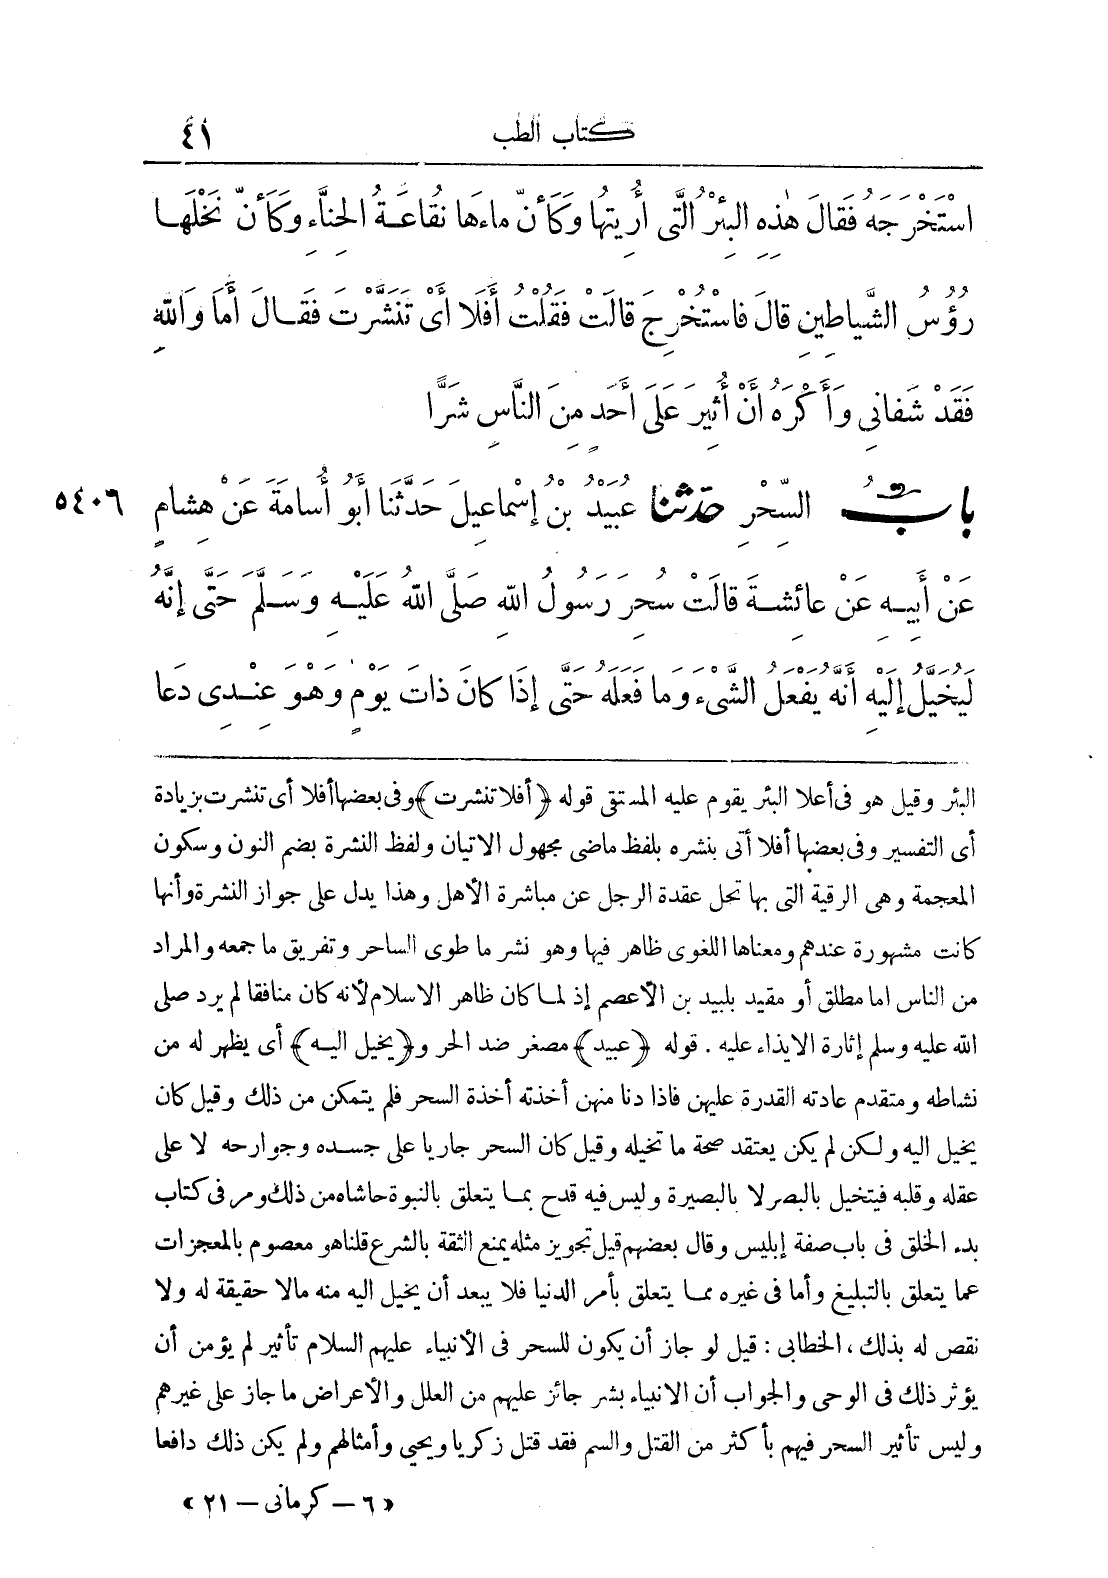 كتاب الطب ٤١
اسْتَخْرَجَهُ فَقَالَ هٰذِهِ البِئْرُ الَّتِى أُرِيتُهَا وَكَأَنَّ ماءَها نُقَاعَةُ الحِنَّاءِ وَكَأَنَّ نَخْلَهَا
رُؤُسُ الشَّيَاطِينِ قالَ فَاسْتُخْرِجَ قالَتْ فَقُلْتُ أَفَلَا أَىْ تَنَشَّرْتَ فَقَالَ أَمَا وَاللّٰهِ
فَقَدْ شَفانِى وَأَكْرَهُ أَنْ أُثِيرَ عَلَى أَحَدٍ مِنَ النَّاسِ شَرًّا
بابُ السِّحْرِ حدثنا عُبَيْدُ بْنُ إِسْماعِيلَ حَدَّثَنا أَبُو أُسامَةَ عَنْ هِشامٍ ٥٤٠٦
عَنْ أَبِيهِ عَنْ عائِشَةَ قالَتْ سُحِرَ رَسُولُ اللّٰهِ صَلَّى اللّٰهُ عَلَيْهِ وَسَلَّمَ حَتَّى إِنَّهُ
لَيُخَيَّلُ إِلَيْهِ أَنَّهُ يَفْعَلُ الشَّىْءَ وَما فَعَلَهُ حَتَّى إِذَا كانَ ذَاتَ يَوْمٍ وَهْوَ عِنْدِى دَعَا
البئر وقيل هو فى أعلا البئر يقوم عليه المستقى قوله ﴿أفلا تنشرت﴾ وفى بعضها أفلا أى تنشرت بزيادة
أى التفسير وفى بعضها أفلا أتى بنشره بلفظ ماضى مجهول الاتيان ولفظ النشرة بضم النون وسكون
المعجمة وهى الرقية التى بها تحل عقدة الرجل عن مباشرة الأهل وهذا يدل على جواز النشرة وأنها
كانت مشهورة عندهم ومعناها اللغوى ظاهر فيها وهو نشر ما طوى الساحر وتفريق ما جمعه والمراد
من الناس اما مطلق أو مقيد بلبيد بن الأعصم إذ لما كان ظاهر الاسلام لأنه كان منافقا لم يرد صلى
الله عليه وسلم إثارة الايذاء عليه . قوله ﴿عبيد﴾ مصغر ضد الحر و﴿يخيل اليه﴾ أى يظهر له من
نشاطه ومتقدم عادته القدرة عليهن فاذا دنا منهن أخذته أخذة السحر فلم يتمكن من ذلك وقيل كان
يخيل اليه ولكن لم يكن يعتقد صحة ما تخيله وقيل كان السحر جاريا على جسده وجوارحه لا على
عقله وقلبه فيتخيل بالبصر لا بالبصيرة وليس فيه قدح بما يتعلق بالنبوة حاشاه من ذلك ومر فى كتاب
بدء الخلق فى باب صفة إبليس وقال بعضهم قيل تجويز مثله يمنع الثقة بالشرع قلنا هو معصوم بالمعجزات
عما يتعلق بالتبليغ وأما فى غيره مما يتعلق بأمر الدنيا فلا يبعد أن يخيل اليه منه مالا حقيقة له ولا
نقص له بذلك ، الخطابى : قيل لو جاز أن يكون للسحر فى الأنبياء عليهم السلام تأثير لم يؤمن أن
يؤثر ذلك فى الوحى والجواب أن الانبياء بشر جائز عليهم من العلل والأعراض ما جاز على غيرهم
وليس تأثير السحر فيهم بأكثر من القتل والسم فقد قتل زكريا ويحيى وأمثالهم ولم يكن ذلك دافعا
« ٦ – كرمانى – ٢١ »